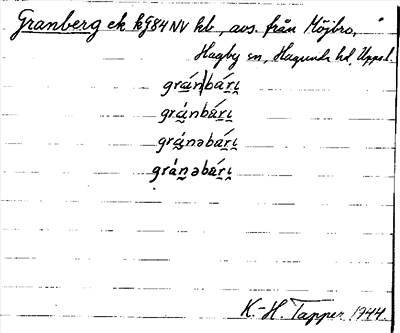 Granberg ek kg84NV kb, avs. från Möjbro,
Hagby sn, Hagunda hd, Uppsl.
grán|bárı̣
gránbárı̣
gránəbárı̣
gránəbárı̣
K.-H. Tapper 1944.